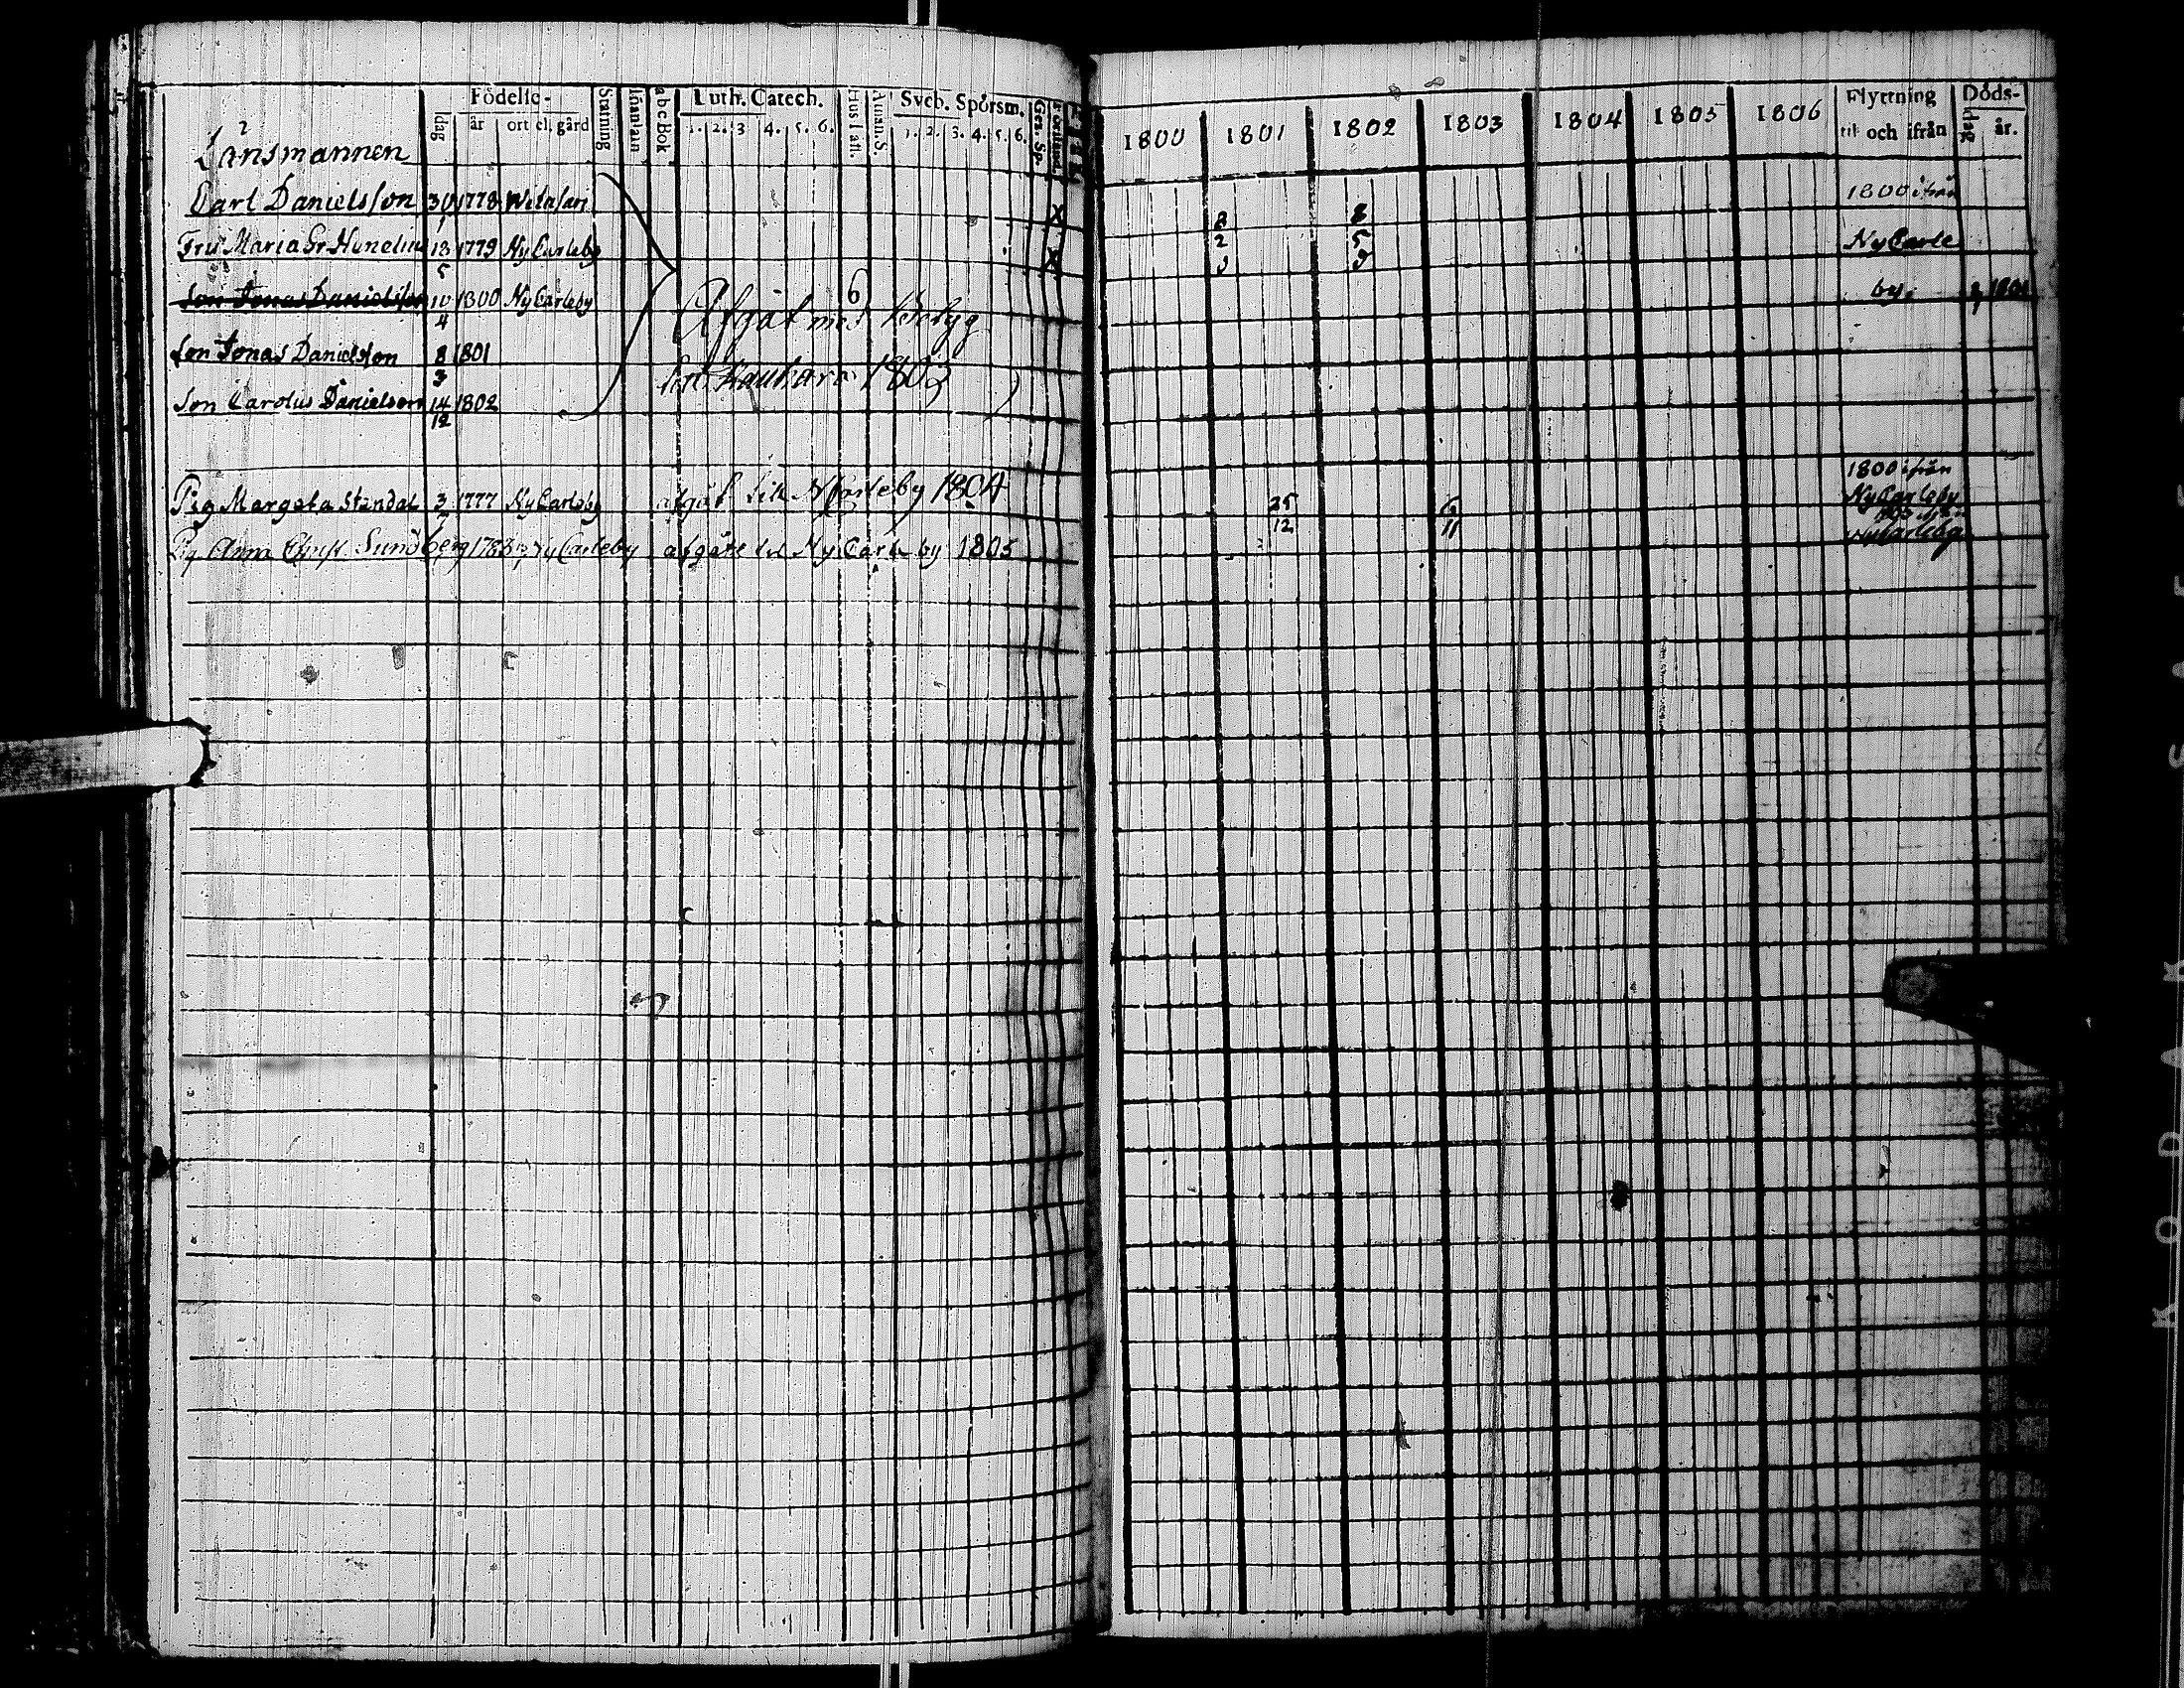 Födelse-
Luth. Catech.
Sveb. Spörsm.
dag
år
ort el. gård
abc Bok
1. 2. 3 4. 5. 6.
1. 2. 3. 4. 5. 6.
Gen. Sp.
Länsmannen
Carl Danielsson 30 1778
Fru Maria Gr. 13 1779 NyCarleby X
5
Son Jonas Danielsson 10 1800 NyCarleby
4
Afgåt med
Son Jonas Danielsson 8 1801
3
til Kauhava 1803
Son Carolus Danielsson 14 1802
12
Pig Margeta Stendal 3 1777 NyCarleby afgåt till NCarleby 1804
Pig Anna Christ Sundberg 1783 NyCarleby afgått til NyCarleby 1805
1800 1801 1802 1803 1804 1805 1806
Flyttning
til och ifrån
Döds-
dag
år.
1800 ifrån
8 8
2 5
NyCarle
by. 1801
1800 ifrån
25 6
NyCarleby
12 11
NyCarleby
KODAK